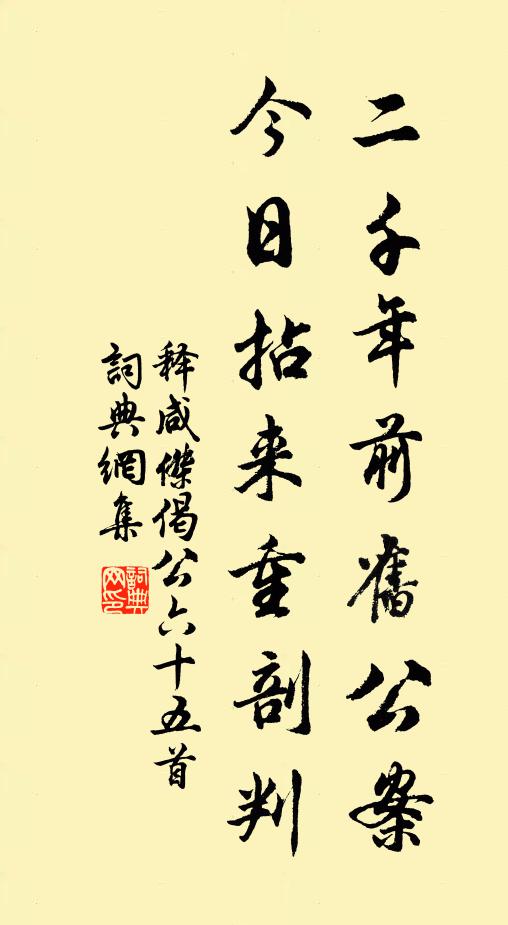 二千年前舊公案
今日拈来重剖判
释咸傑偈公六十五首
詞典網集
詞典网印